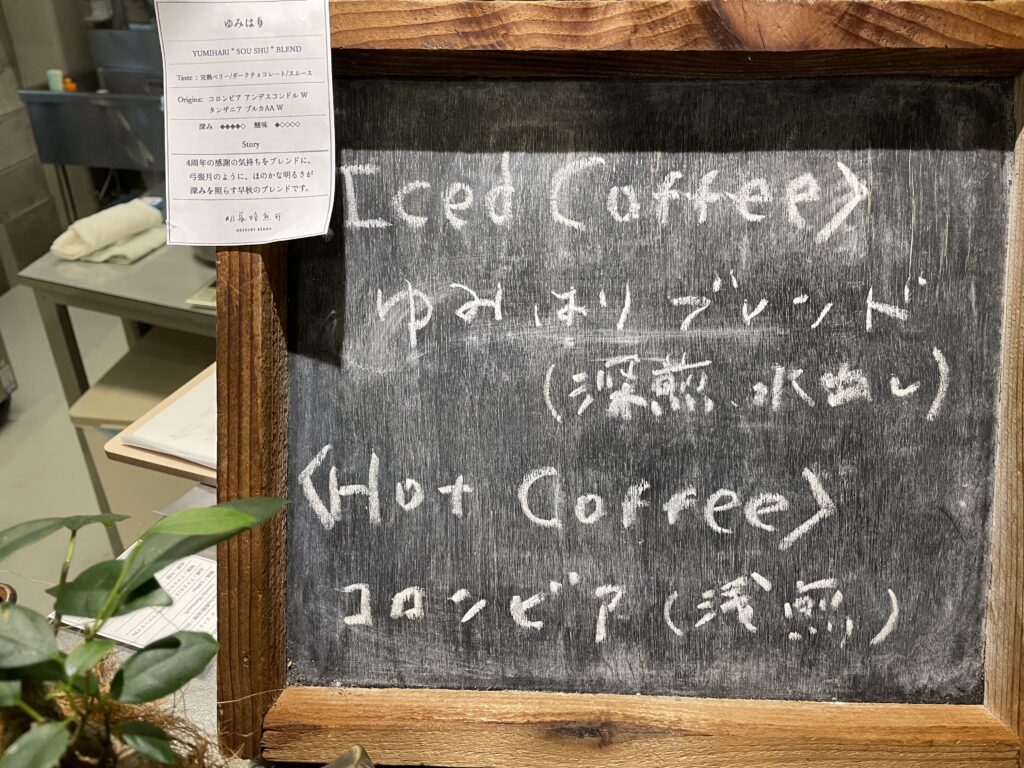 ゆみはり
YUMIHARI " SOU SHU " BLEND
Taste : 完熟ベリー/ダークチョコレート/スムース
Origins: コロンビア アンデスコンドル W
タンザニア ブルカAA W
深み ◆◆◆◆◇ 酸味 ◆◇◇◇◇
Story
4周年の感謝の気持ちをブレンドに。
弓張月のように、ほのかな明るさが
深みを照らす早秋のブレンドです。
Iced Coffee〉
ゆみはりブレンド
(深煎 水出し)
〈Hot Coffee〉
コロンビア (浅煎)